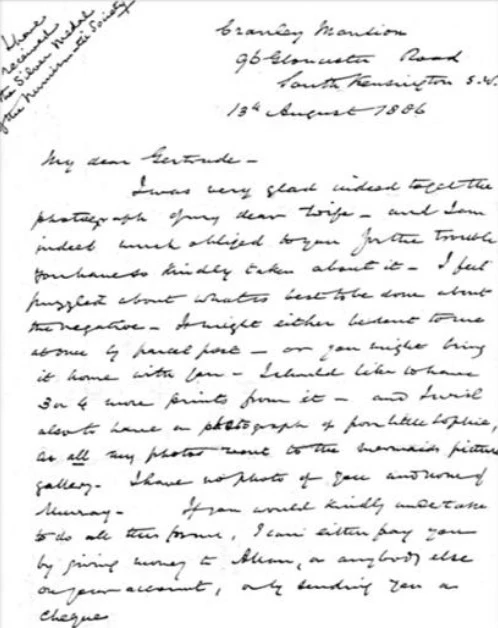 I have
received
the Silver Medal
of the Numismatic Society
Cranley Mansion
96 Gloucester Road
South Kensington S.W.
13th August 1886
My dear Gertrude -
I was very glad indeed to get the
photograph of my dear wife - and I am
indeed much obliged to you for the trouble
you have so kindly taken about it - I feel
puzzled about what is best to be done about
the negative - It might either be sent to me
at once by parcel post - or you might bring
it home with you - I should like to have
3 or 4 more prints from it - and I wish
also to have a photograph of poor little Sophie,
as all my photos went to the mermaids picture
gallery - I have no photo of you and none of
Murray - If you would kindly undertake
to do all this for me, I can either pay you
by giving money to Allan, or anybody else
on your account, or by sending you a
cheque